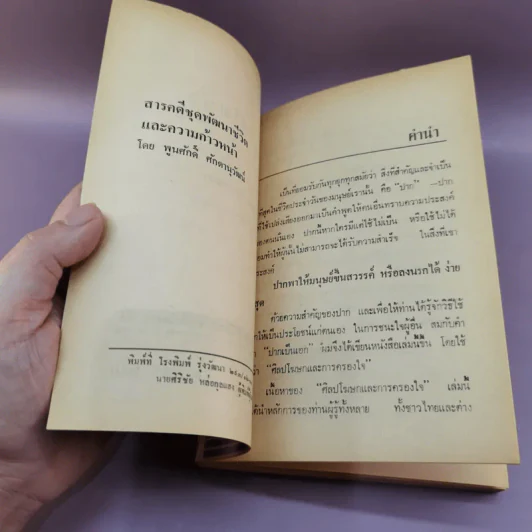 สารคดีชุดพัฒนาชีวิต
และความก้าวหน้า
โดย พูนศักดิ์ ศักดานุวัฒน์
พิมพ์ที่ โรงพิมพ์ รุ่งวัฒนา
นายศิริชัย
คำนำ
เป็นที่ยอมรับกันทุกยุคทุกสมัยว่า สิ่งที่สำคัญและจำเป็น
ที่สุดในชีวิตประจำวันของมนุษย์เรานั้น คือ "ปาก" —ปาก
ที่ใช้เปล่งเสียงออกมาเป็นคำพูดให้คนอื่นทราบความประสงค์
ของตนนั่นเอง ปากนี้หากใครมีแต่ใช้ไม่เป็น หรือใช้ไม่ได้
ย่อมทำให้ผู้นั้นไม่สามารถจะได้รับความสำเร็จ ในสิ่งที่เขา
ประสงค์
ปากพาให้มนุษย์ขึ้นสวรรค์ หรือลงนรกได้ ง่าย
สุด
ด้วยความสำคัญของปาก และเพื่อให้ท่านได้รู้จักวิธีใช้
ให้เป็นประโยชน์แก่ตนเอง ในการชนะใจผู้อื่น สมกับคำ
"ปากเป็นเอก" ผมจึงได้เขียนหนังสือเล่มนี้ขึ้น โดยใช้
"ศิลปโฆษกและการครองใจ"
เนื้อหาของ "ศิลปโฆษกและการครองใจ" เล่มนี้
ได้นำหลักการของท่านผู้รู้ทั้งหลาย ทั้งชาวไทยและต่าง